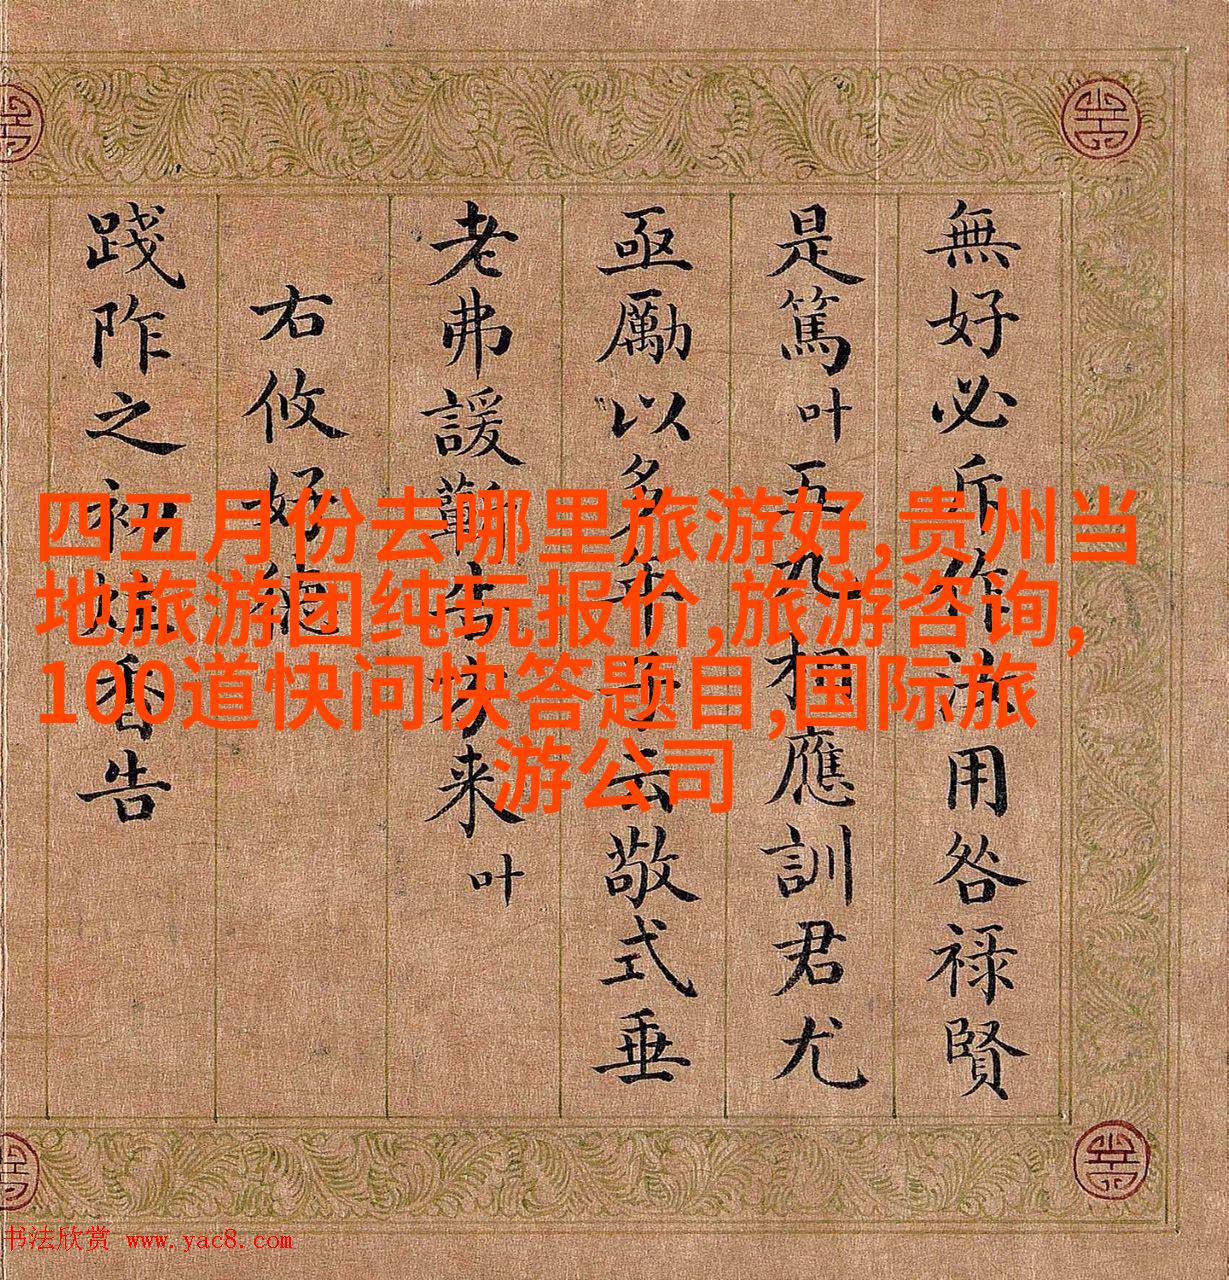 四五月份去哪里旅游好,贵州当
地旅游团纯玩报价,旅游咨询,
100道快问快答题目,国际旅
游公司
無好必斥作法用咎禄賢
是篤叶五九相應訓君尤
亟勵以多年敬式垂
老弗諼来叶
右攸好德
踐阼之初告
书法欣赏 www.yac8.com